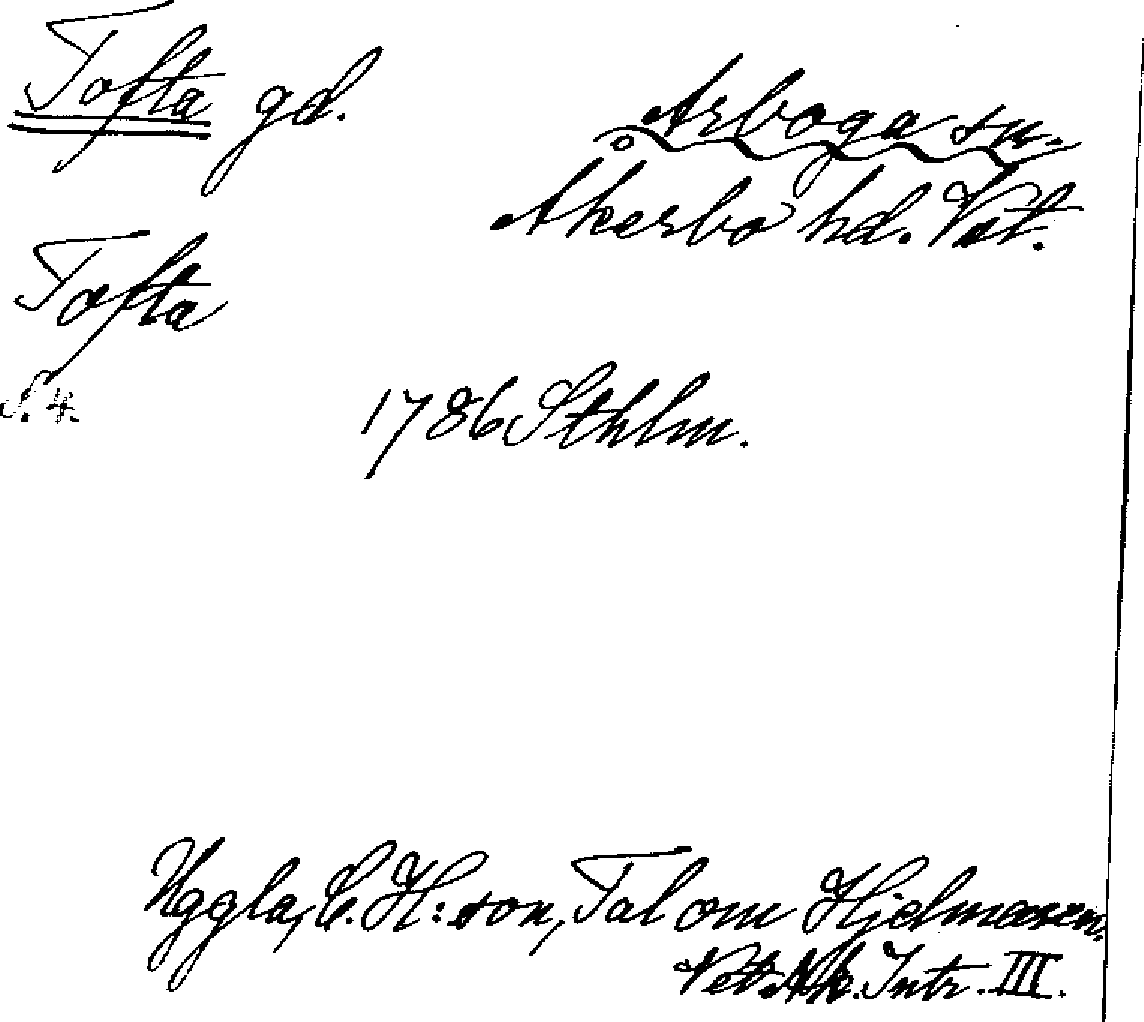 Tofta gd.
Arboga sn.
Åkerbo hd. Vst.
Tofta
S. 4.
1786 Sthlm.
Uggla, C. H:son, Tal om Hjelmaren.
Vet. Ak. Intr. III.